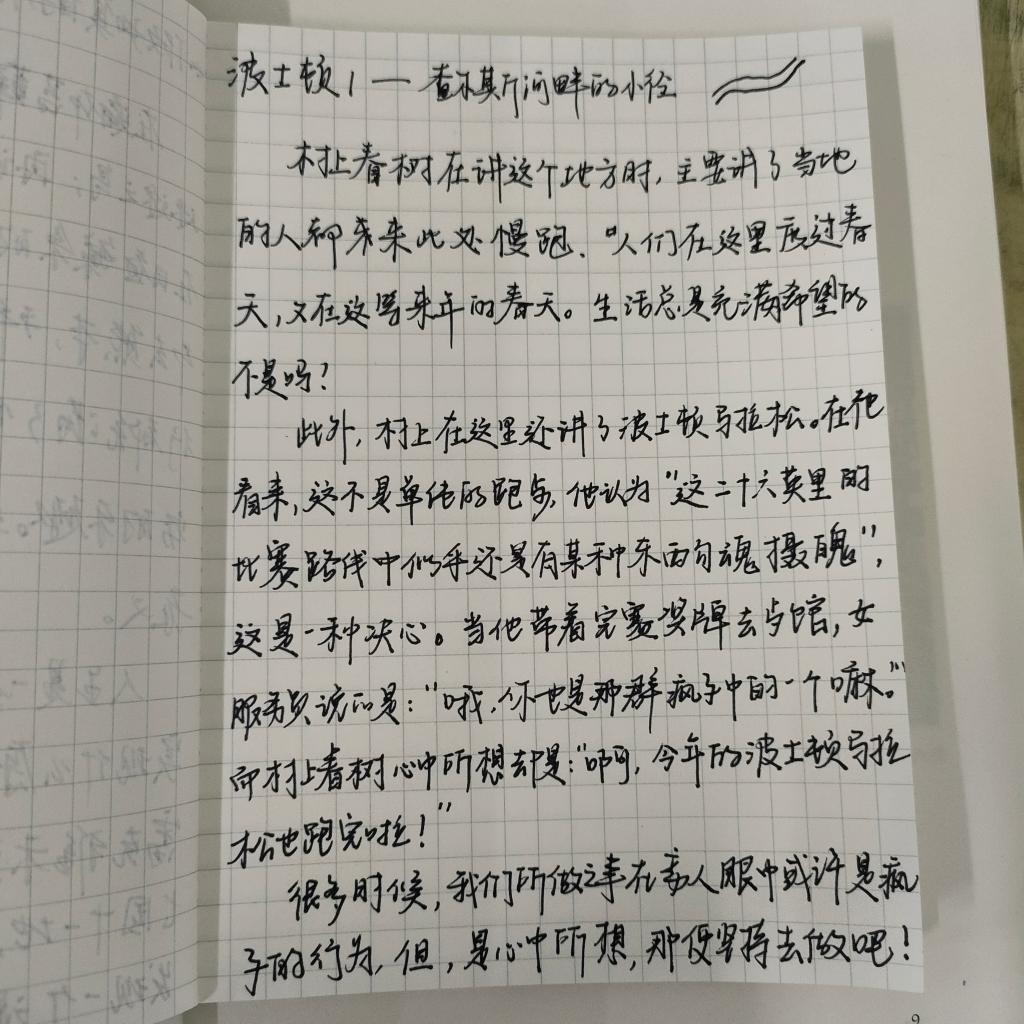 波士顿1 — 查尔斯河畔的小径
村上春树在讲这个地方时,主要讲了当地
的人都来来此处慢跑、“人们在这里度过春
天,又在这等来年的春天。生活总是充满希望的
不是吗?
此外,村上在这里还讲了波士顿马拉松。在他
看来,这不是单纯的跑步,他认为“这二十六英里的
比赛路线中似乎还是有某种东西勾魂摄魄”,
这是一种决心。当他带着完赛奖牌去乡馆,女
服务员说的是:“哦,你也是那群疯子中的一个嘛。”
而村上春树心中所想却是:“啊,今年的波士顿马拉
松也跑完啦!”
很多时候,我们所做之事在旁人眼中或许是疯
子的行为,但,是心中所想,那便坚持去做吧!
9